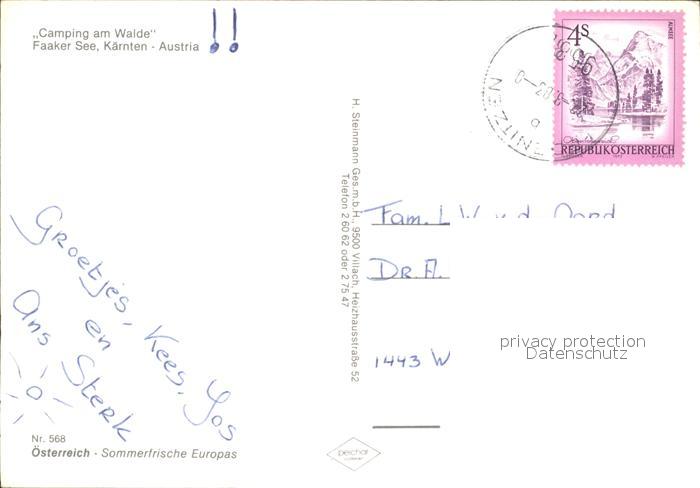 „Camping am Walde"
Faaker See, Kärnten - Austria !!
4S
ALMSEE
REPUBLIK ÖSTERREICH
H. Steinmann Ges.m.b.H., 9500 Villach, Heizhausstraße 52
Telefon 2 60 62 oder 2 75 47
Fam. L
Dr. A.
1443 W
privacy protection
Datenschutz
Groetjes,
Kees, Jos
en
Ans Sterk
Nr. 568
Österreich - Sommerfrische Europas